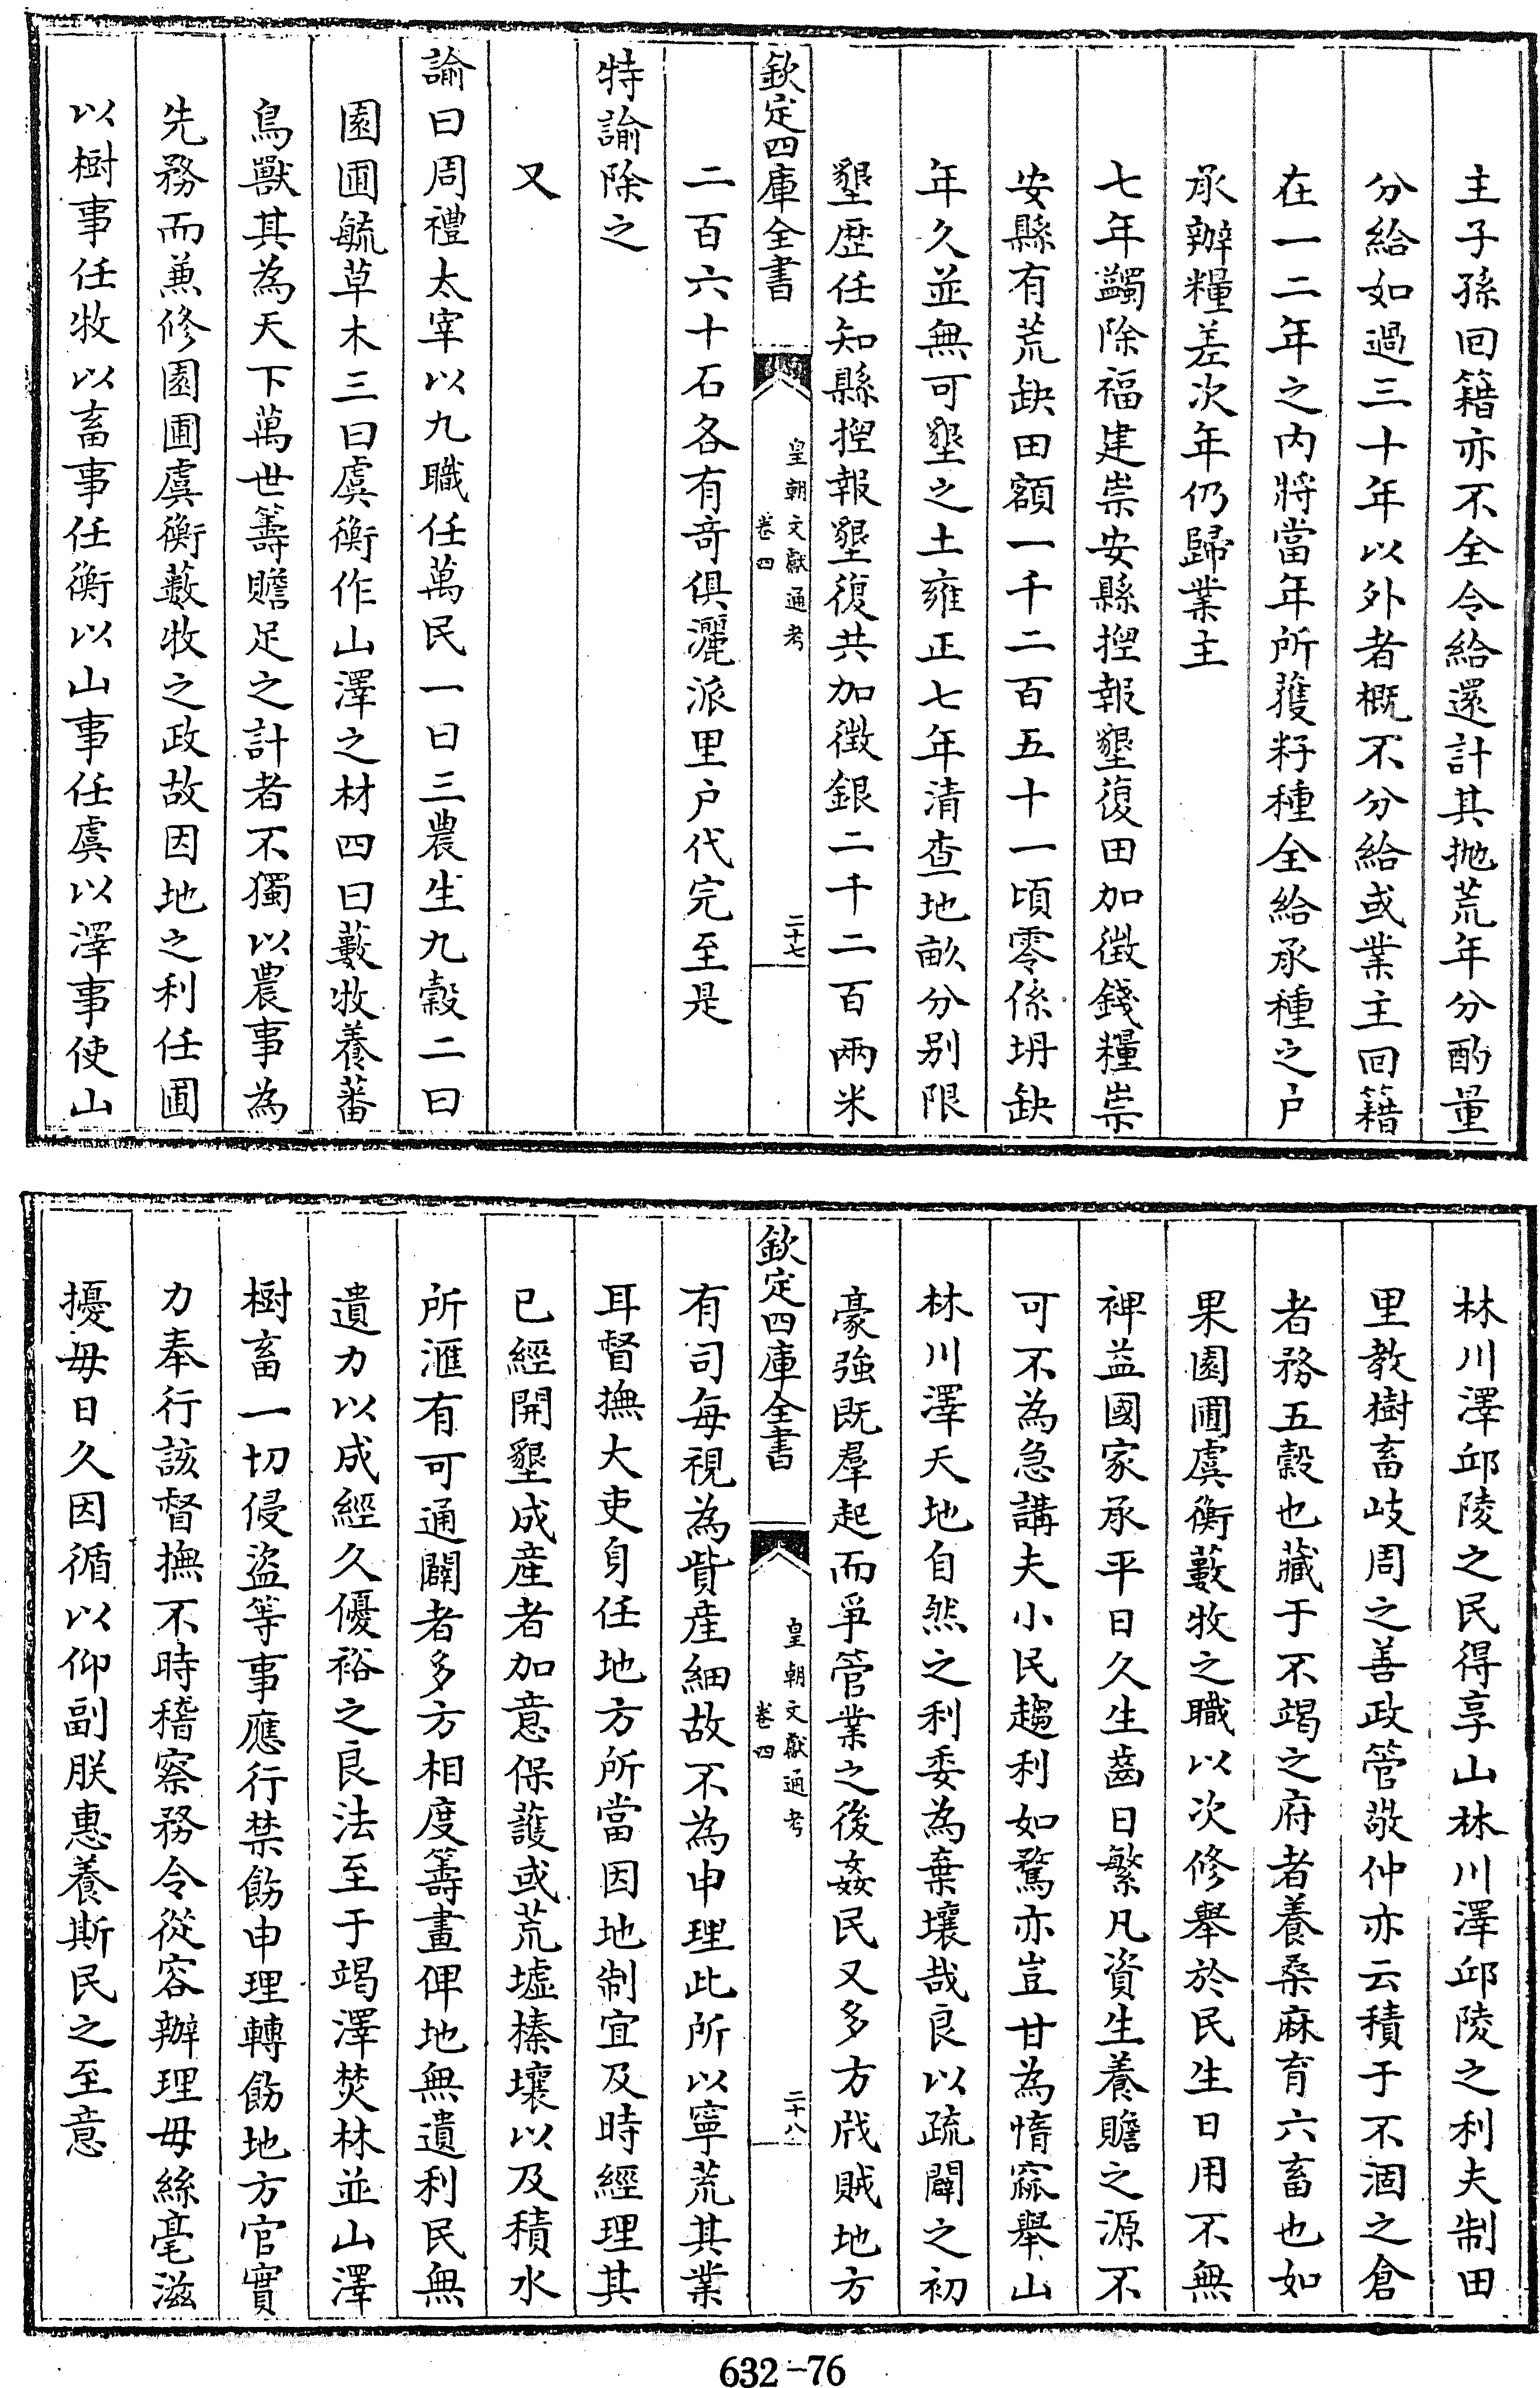 主子孫回籍亦不全令給還計其抛荒年分酌量
分給如過三十年以外者概不分給或業主回籍
在一二年之内將當年所獲籽種全給承種之户
承辦糧差次年仍歸業主
七年蠲除福建崇安縣揑報墾復田加徴錢糧崇
安縣有荒缺田額一千二百五十一頃零係坍缺
年久並無可墾之土雍正七年清查地畝分别限
墾歴任知縣揑報墾復共加徴銀二千二百兩米
欽定四庫全書
皇朝文獻通考
卷四
二十七
二百六十石各有奇俱灑派里户代完至是
特諭除之
又
諭曰周禮太宰以九職任萬民一曰三農生九穀二曰
園圃毓草木三曰虞衡作山澤之材四曰藪牧養蕃
鳥獸其為天下萬世籌贍足之計者不獨以農事為
先務而兼修園圃虞衡藪牧之政故因地之利任圃
以樹事任牧以畜事任衡以山事任虞以澤事使山
林川澤邱陵之民得享山林川澤邱陵之利夫制田
里教樹畜岐周之善政管敬仲亦云積于不涸之倉
者務五穀也藏于不竭之府者養桑麻育六畜也如
果園圃虞衡藪牧之職以次修舉於民生日用不無
裨益國家承平日久生齒日繁凡資生養贍之源不
可不為急講夫小民趨利如鶩亦豈甘為惰窳舉山
林川澤天地自然之利委為棄壤哉良以疏闢之初
豪強既羣起而爭管業之後姦民又多方戕賊地方
欽定四庫全書
皇朝文獻通考
卷四
二十八
有司每視為貲産細故不為申理此所以寧荒其業
耳督撫大吏身任地方所當因地制宜及時經理其
已經開墾成産者加意保護或荒墟榛壤以及積水
所滙有可通闢者多方相度籌畫俾地無遺利民無
遺力以成經久優裕之良法至于竭澤焚林並山澤
樹畜一切侵盜等事應行禁飭申理轉飭地方官實
力奉行該督撫不時稽察務令從容辦理毋絲毫滋
擾毋日久因循以仰副朕惠養斯民之至意
632-76